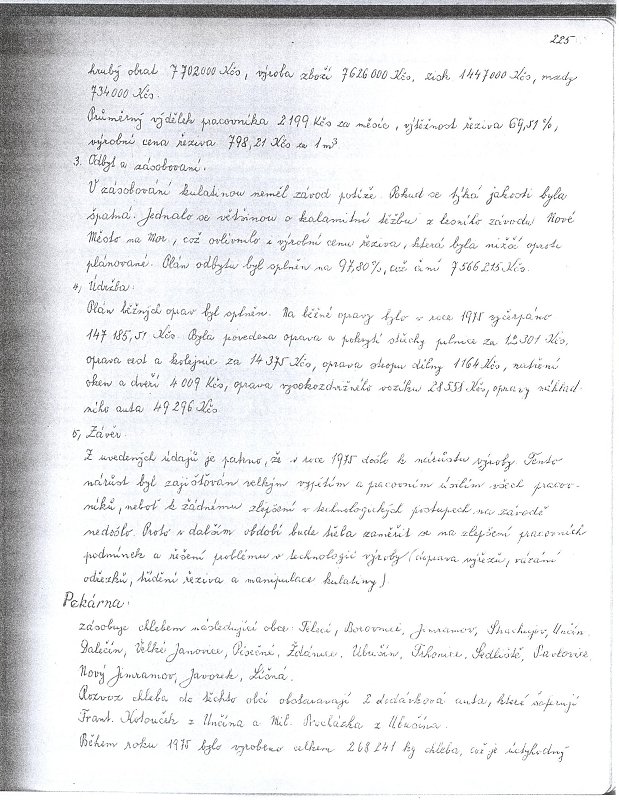 225
hrubý obrat 7 702 000 Kčs, výroba zboží 7 626 000 Kčs, zisk 1 447 000 Kčs, mzdy
734 000 Kčs.
Průměrný výdělek pracovníka 2 199 Kčs za měsíc, výtěžnost řeziva 69,51 %,
výrobní cena řeziva 798,21 Kčs za 1 m³
3. Odbyt a zásobování.
V zásobování kulatinou neměl závod potíže. Pokud se týká jakosti byla
špatná. Jednalo se většinou o kalamitní těžbu z lesního závodu Nové
Město na Mor., což ovlivnilo i výrobní cenu řeziva, která byla nižší oproti
plánované. Plán odbytu byl splněn na 97,80 %, což činí 7 566 215 Kčs.
4, Údržba:
Plán běžných oprav byl splněn. Na běžné opravy bylo v roce 1975 vyčerpáno
147 185,51 Kčs. Byla provedena oprava a pokrytí střechy pilnice za 12 301 Kčs,
oprava cest a kolejnic za 14 375 Kčs, oprava stropu dílny 1164 Kčs, natření
oken a dveří 4 009 Kčs, oprava vysokozdvižného vozíku 28 558 Kčs, opravy náklad
ního auta 49 296 Kčs
5, Závěr:
Z uvedených údajů je patrno, že v roce 1975 došlo k nárůstu výroby. Tento
nárůst byl zajišťován velkým vypětím a pracovním úsilím všech pracov-
níků, neboť k žádnému zlepšení v technologických postupech na závodě
nedošlo. Proto v dalším období bude třeba zaměřit se na zlepšení pracovních
podmínek a řešení problému v technologii výroby (úprava výřezů, vázání
odřezků, třídění řeziva a manipulace kulatiny)
Pekárna:
zásobuje chlebem následující obce: Telecí, Borovnice, Jimramov, Strachujov, Unčín,
Dalečín, Velké Janovice, Písečné, Ždánice, Ubušín, Trhonice, Sedliště,
Nový Jimramov, Javorek, Líšná.
Rozvoz chleba do těchto obcí obstarávají 2 dodávková auta, které šoferují
Frant. z Unčína a Mil. Procházka z Ubušína.
Během roku 1975 bylo vyrobeno celkem 268 241 kg chleba, což je úctyhodný